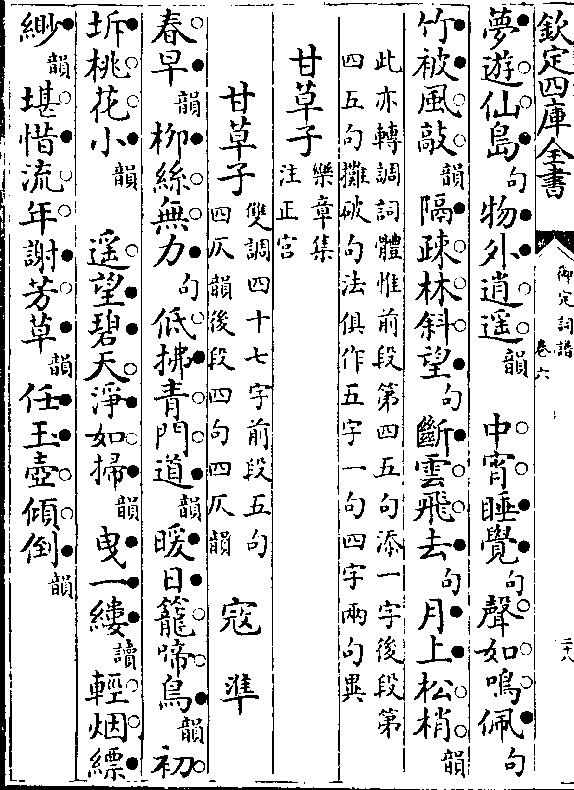 欽定四庫全書
御定詞譜
卷六
二十八
夢遊仙島句物外逍遥韻 中宵睡覺句聲如鳴佩句
竹被風敲韻隔疎林斜望句斷雲飛去句月上松梢韻
此亦轉調詞體惟前段第四五句添一字後段第
四五句攤破句法俱作五字一句四字兩句異
甘草子 樂章集
注正宮
甘草子 雙調四十七字前段五句
四仄韻後段四句四仄韻 寇準
春早韻柳絲無力句低拂青門道韻暖日籠啼鳥韻初
坼桃花小韻 遥望碧天淨如掃韻曳一縷讀輕烟縹
緲韻堪惜流年謝芳草韻任玉壺傾倒韻